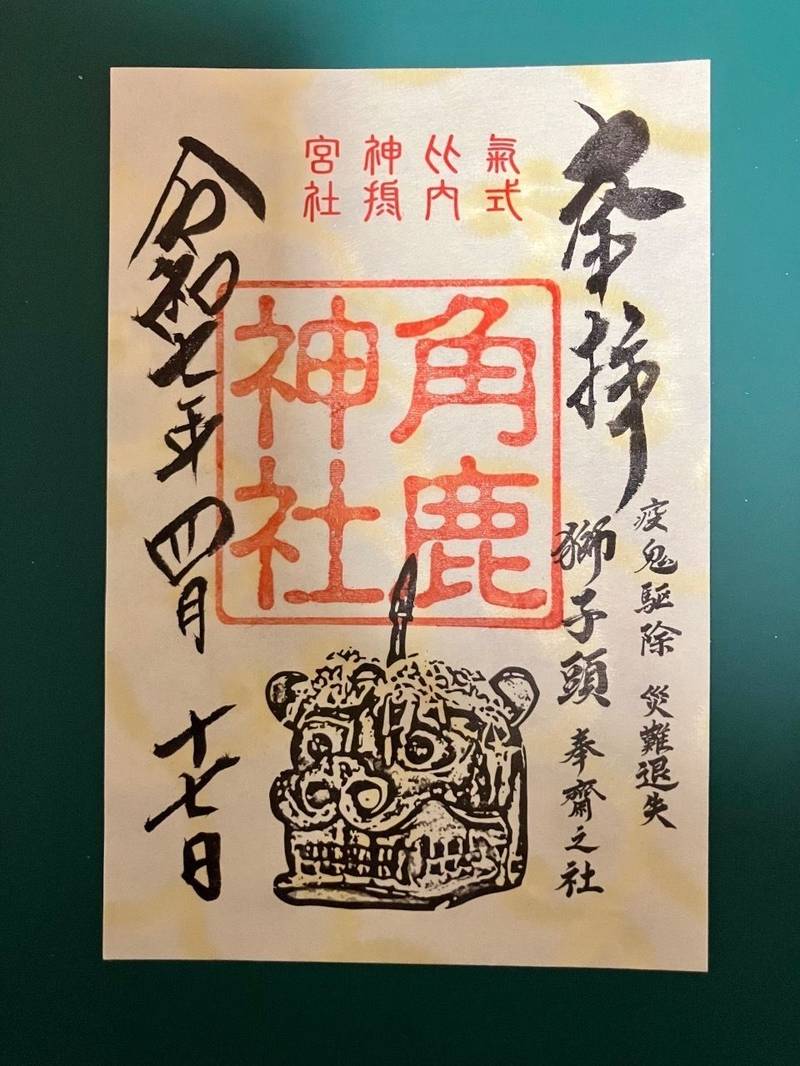 奉拝
疫鬼駆除 災難退失
獅子頭 奉齋之社
氣比神宮
式内摂社
角鹿
神社
令和七年四月 十七日